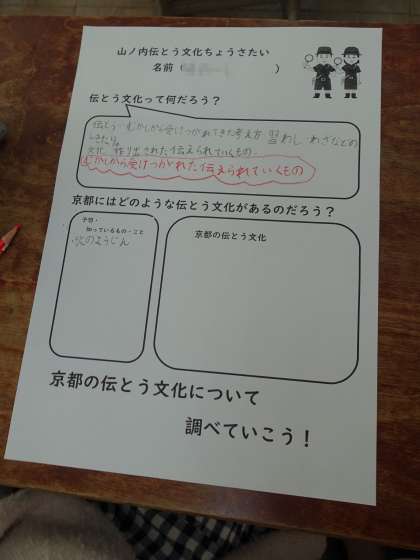 山ノ内伝とう文化ちょうさたい
名前（　　　）
伝とう文化って何だろう？
伝とう…むかしから受けつがれてきた考え方 習わし・わざなどの
しきたり。
文化 作り出された伝えられていくもの。
むかしから受けつがれた伝えられていくもの
京都にはどのような伝とう文化があるのだろう？
予想・
知っているもの・こと
・火のようじん
京都の伝とう文化
京都の伝とう文化について
調べていこう！